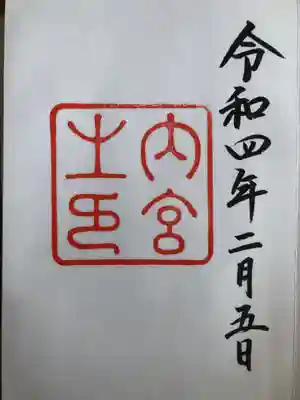 令和四年二月五日
内宮
之印